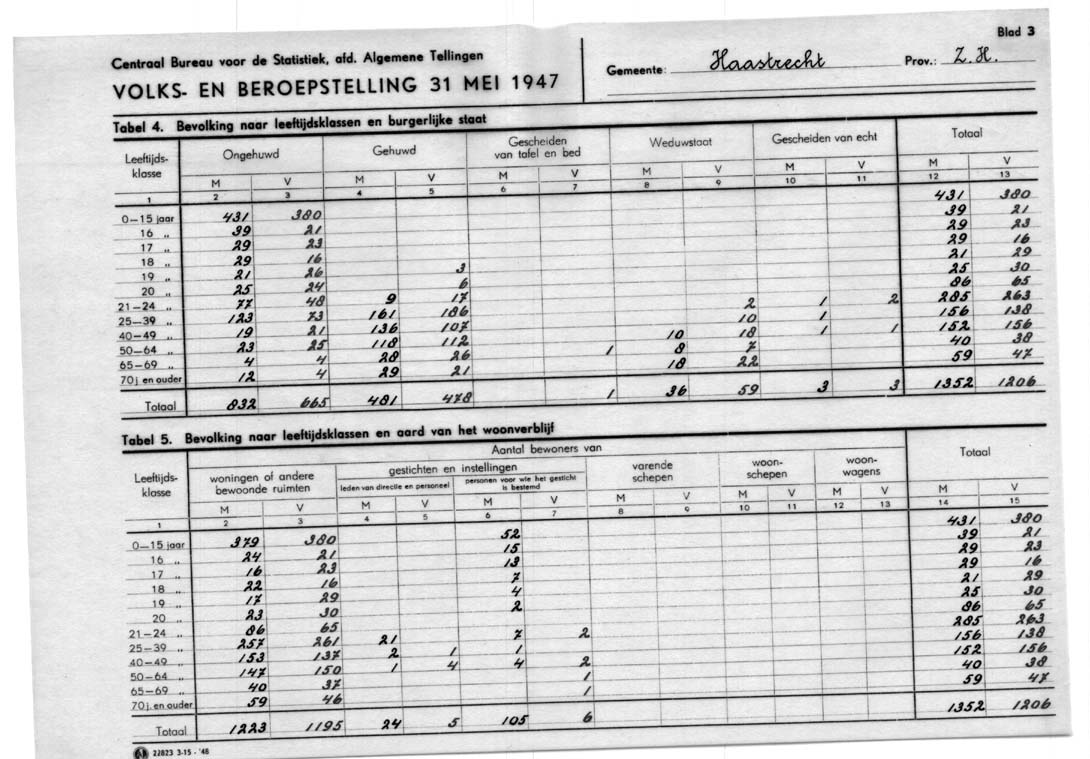 Blad 3
Centraal Bureau voor de Statistiek, afd. Algemene Tellingen
VOLKS- EN BEROEPSTELLING 31 MEI 1947
Gemeente: Haastrecht Prov.: Z.H.
Tabel 4. Bevolking naar leeftijdsklassen en burgerlijke staat
Leeftijds-klasse Ongehuwd Gehuwd Gescheiden van tafel en bed Weduwstaat Gescheiden van echt Totaal
M V M V M V M V M V M V
1 2 3 4 5 6 7 8 9 10 11 12 13
0—15 jaar 431 380 431 380
16 „ 39 21 39 21
17 „ 29 23 29 23
18 „ 29 16 29 16
19 „ 21 26 3 21 29
20 „ 25 24 6 25 30
21—24 „ 77 48 9 17 86 65
25—39 „ 123 73 161 186 2 1 2 285 263
40—49 „ 19 21 136 107 10 1 156 138
50—64 „ 23 25 118 112 10 18 1 1 152 156
65—69 „ 4 4 28 26 1 8 7 40 38
70 j. en ouder 12 4 29 21 18 22 59 47
Totaal 832 665 481 478 1 36 59 3 3 1352 1206
Tabel 5. Bevolking naar leeftijdsklassen en aard van het woonverblijf
Aantal bewoners van
Leeftijds-klasse woningen of andere bewoonde ruimten gestichten en instellingen varende schepen woon-schepen woon-wagens Totaal
leden van directie en personeel personen voor wie het gesticht is bestemd
M V M V M V M V M V M V M V
1 2 3 4 5 6 7 8 9 10 11 12 13 14 15
0—15 jaar 379 380 52 431 380
16 „ 24 21 15 39 21
17 „ 16 23 13 29 23
18 „ 22 16 7 29 16
19 „ 17 29 4 21 29
20 „ 23 30 2 25 30
21—24 „ 86 65 86 65
25—39 „ 257 261 21 7 2 285 263
40—49 „ 153 137 2 1 1 156 138
50—64 „ 147 150 1 4 4 2 152 156
65—69 „ 40 37 1 40 38
70 j. en ouder 59 46 1 59 47
Totaal 1223 1195 24 5 105 6 1352 1206
22823 3-15 - '48